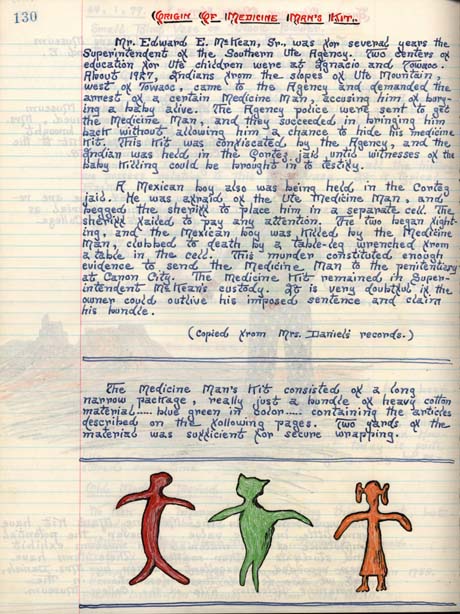 130
Origin Of Medicine Man's Kit..
Mr. Edward E. McKean, Sr., was for several years the
Superintendent of the Southern Ute Agency. Two centers of
education for Ute children were at Ignacio and Towaoc.
About 1927, Indians from the slopes of Ute Mountain,
west of Towaoc, came to the Agency and demanded the
arrest of a certain Medicine Man, accusing him of bury-
ing a baby alive. The Agency police were sent to get
the Medicine Man, and they succeeded in bringing him
back without allowing him a chance to hide his medicine
kit. This kit was confiscated by the Agency, and the
Indian was held in the Cortez jail until witnesses of the
baby killing could be brought in to testify.
A Mexican boy also was being held in the Cortez
jail. He was afraid of the Ute Medicine Man, and
begged the sheriff to place him in a separate cell. The
sheriff failed to pay any attention. The two began fight-
ing, and the Mexican boy was killed by the Medicine
Man, clubbed to death by a table-leg wrenched from
a table in the cell. This murder constituted enough
evidence to send the Medicine Man to the penitentiary
at Canon City. The Medicine Kit remained in Super-
intendent McKean's custody. It is very doubtful if the
owner could outlive his imposed sentence and claim
his bundle.
(Copied from Mrs. Daniels records.)
The Medicine Man's Kit consisted of a long
narrow package, really just a bundle of heavy cotton
material..... blue green in color..... containing the articles
described on the following pages. Two yards of the
material was sufficient for secure wrapping.